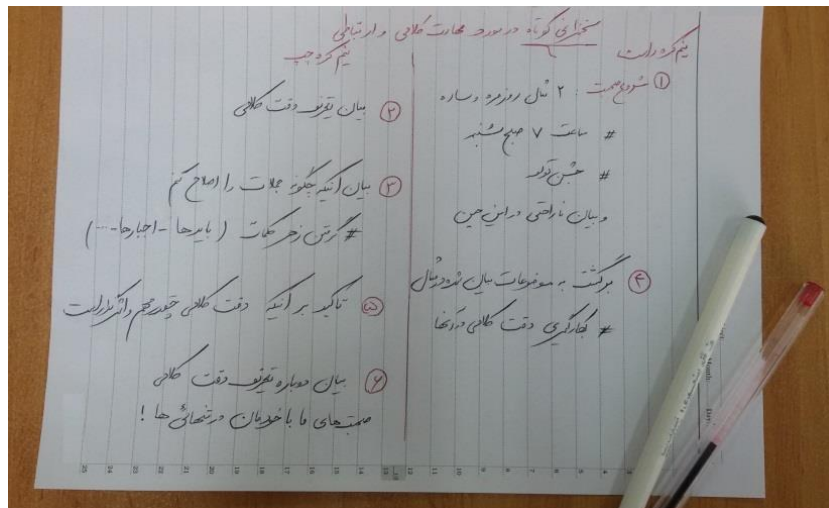 سخنرانی کوتاه در مورد مهارت کلامی و ارتباطی
نیم کره راست
① شروع صحبت : ۲ مثال روزمره و ساده
# ساعت ۷ صبح شنبه
# جشن تولد
و بیان ناراحتی در این حین
④ برگشت به موضوعات بیان شده در مثال
# بکارگیری دقت کلامی در آنها
نیم کره چپ
② بیان تعریف دقت کلامی
③ بیان اینکه چگونه جملات را اصلاح کنم
# گرفتن زهر کلمات (بایدها - اجبارها - ...)
⑤ تاکید بر اینکه دقت کلامی چقدر مهم و اثرگذار است
⑥ بیان دوباره تعریف دقت کلامی
صحبت‌های ما با خودمان در تنهائی ها !